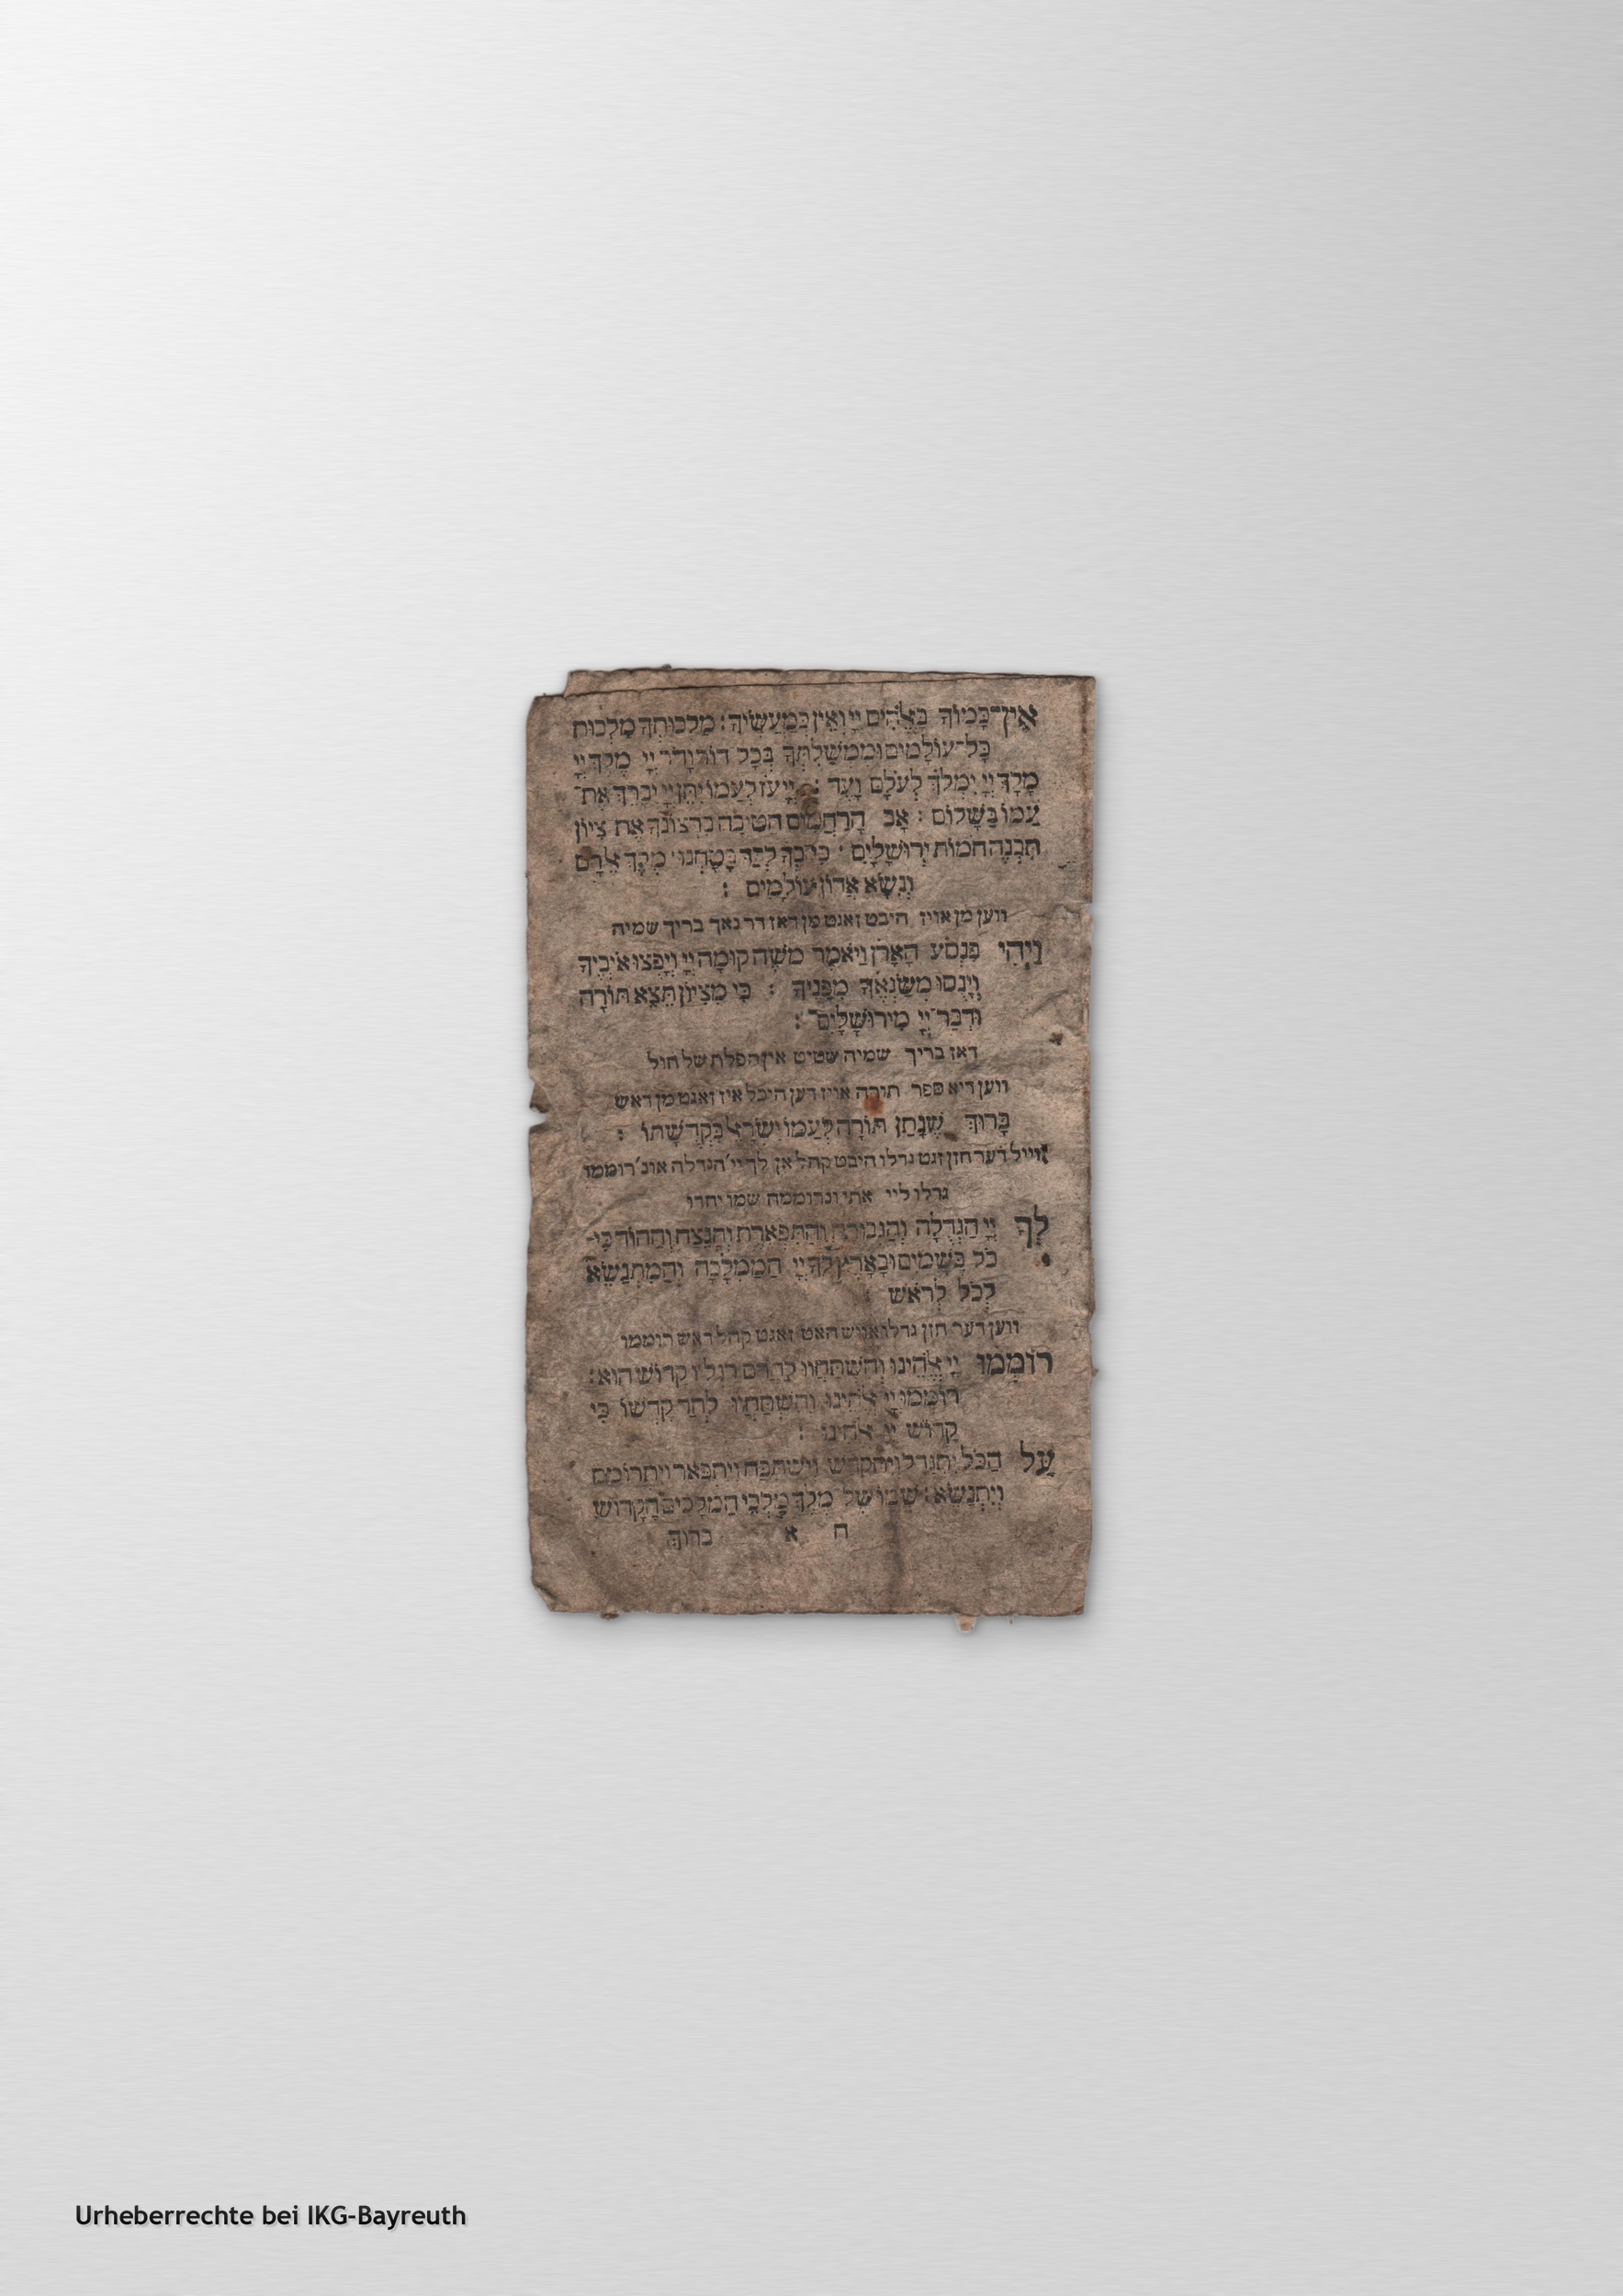 אֵין־כָּמוֹךָ בָאֱלֹהִים יְיָ וְאֵין כְּמַעֲשֶׂיךָ : מַלְכוּתְךָ מַלְכוּת
כָּל־עוֹלָמִים וּמֶמְשַׁלְתְּךָ בְּכָל דוֹר וָדֹר יְיָ מֶלֶךְ יְיָ
מָלָךְ יְיָ יִמְלֹךְ לְעֹלָם וָעֶד : יְיָ עֹז לְעַמוֹ יִתֵּן יְיָ יְבָרֵךְ אֶת־
עַמוֹ בַּשָּׁלוֹם : אָב הָרַחֲמִים הֵטִיבָה בִרְצוֹנְךָ אֶת צִיוֹן
תִּבְנֶה חוֹמוֹת יְרוּשָׁלָיִם · כִּי בְךָ לְבַד בָּטָחְנוּ · מֶלֶךְ אֵל רָם
וְנִשָּׂא אֲדוֹן עוֹלָמִים :
ווען מן אויז היבט זאגט מן דאז דר נאך בריך שמיה
וַיְהִי בִּנְסֹעַ הָאָרֹן וַיֹּאמֶר מֹשֶׁה קוּמָה יְיָ וְיָפֻצוּ אֹיְבֶיךָ
וְיָנֻסוּ מְשַׂנְאֶךָ מִפָּנֶיךָ : כִּי מִצִיוֹן תֵּצֵא תוֹרָה
וּדְבַר־יְיָ מִירוּשָׁלָיִם :
דאז בריך שמיה שטיט אין תפלת של חול
ווען דיא ספר תורה אויז דען היכל איז זאגט מן דאש
בָּרוּךְ שֶׁנָּתַן תּוֹרָה לְעַמוֹ יִשְׂרָאֵל בִּקְדֻשָׁתוֹ :
ווייל דער חזן זגט גדלו היבט קהל אן לך יי׳ הגדלה אונ׳ רוממו
גדלו ליי אתי ונרוממה שמו יחדו
לְךָ יְיָ הַגְּדֻלָה וְהַגְּבוּרָה וְהַתִּפְאֶרֶת וְהַנֵּצַח וְהַהוֹד כִּי־
כֹל בַּשָּׁמַיִם וּבָאָרֶץ לְךָ יְיָ הַמַּמְלָכָה וְהַמִּתְנַשֵּׂא
לְכֹל לְרֹאשׁ
ווען דער חזן גדלו אויש האט זאגט קהל דאש רוממו
רוֹמְמוּ יְיָ אֱלֹהֵינוּ וְהִשְׁתַּחֲווּ לַהֲדֹם רַגְלָיו קָדוֹשׁ הוּא :
רוֹמְמוּ יְיָ אֱלֹהֵינוּ וְהִשְׁתַּחֲווּ לְהַר קָדְשׁוֹ כִּי
קָדוֹשׁ יְיָ אֱלֹהֵינוּ :
עַל הַכֹּל יִתְגַּדַּל וְיִתְקַדַּשׁ וְיִשְׁתַּבַּח וְיִתְפָּאַר וְיִתְרוֹמַם
וְיִתְנַשֵּׂא שְׁמוֹ שֶׁל מֶלֶךְ מַלְכֵי הַמְּלָכִים הַקָּדוֹשׁ
ח א ברוך
Urheberrechte bei IKG-Bayreuth